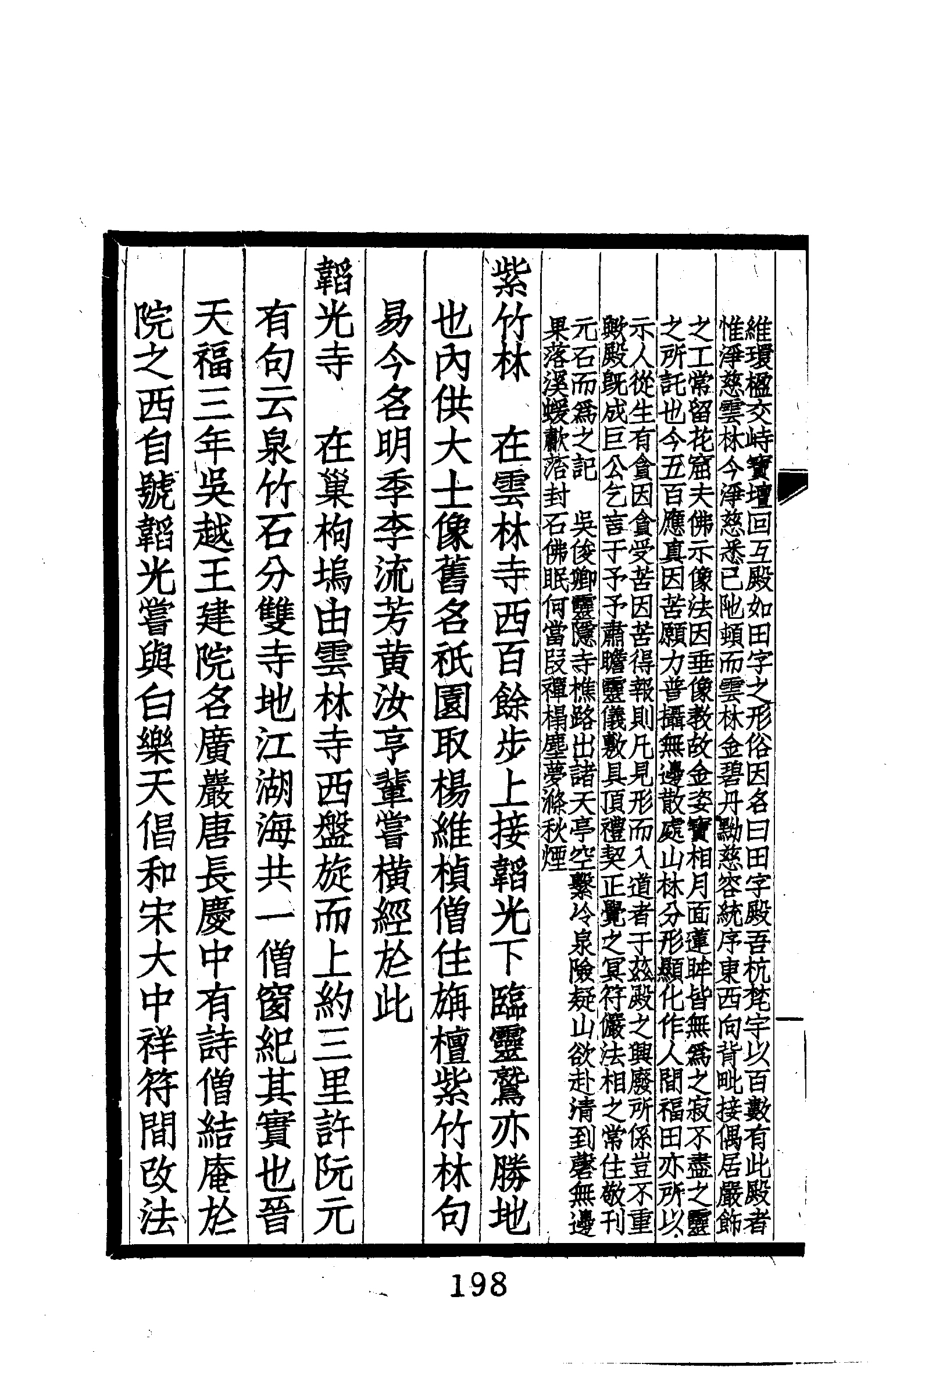 維環楹交峙寶壇回互殿如田字之形俗因名曰田字殿吾杭梵宇以百數有此殿者
惟淨慈雲林今淨慈悉已阤頓而雲林金碧丹黝慈容統序東西向背毗接偶居嚴飾
之工常留花窟夫佛示像法因垂像教故金姿寶相月面蓮眸皆無爲之寂不盡之靈
之所託也今五百應真因苦願力普攝無邊散處山林分形顯化作人間福田亦所以
示人從生有貪因貪受苦因苦得報則凡見形而入道者于茲殿之興廢所係豈不重
瞰殿既成巨公乞言于予予肅瞻靈儀敷具頂禮契正覺之冥符儼法相之常住敬刊
元石而爲之記　吳俊卿靈隱寺樵路出諸天亭空繫冷泉險疑山欲赴清到磬無邊
果落溪蝯歗落封石佛眠何當叚禪榻塵夢滌秋煙
紫竹林　在雲林寺西百餘步上接韜光下臨靈鷲亦勝地
也內供大士像舊名祇園取楊維楨僧住旃檀紫竹林句
易今名明季李流芳黃汝亨輩嘗橫經於此
韜光寺　在巢枸塢由雲林寺西盤旋而上約三里許阮元
有句云泉竹石分雙寺地江湖海共一僧窗紀其實也晉
天福三年吳越王建院名廣嚴唐長慶中有詩僧結庵於
院之西自號韜光嘗與白樂天倡和宋大中祥符間改法
198